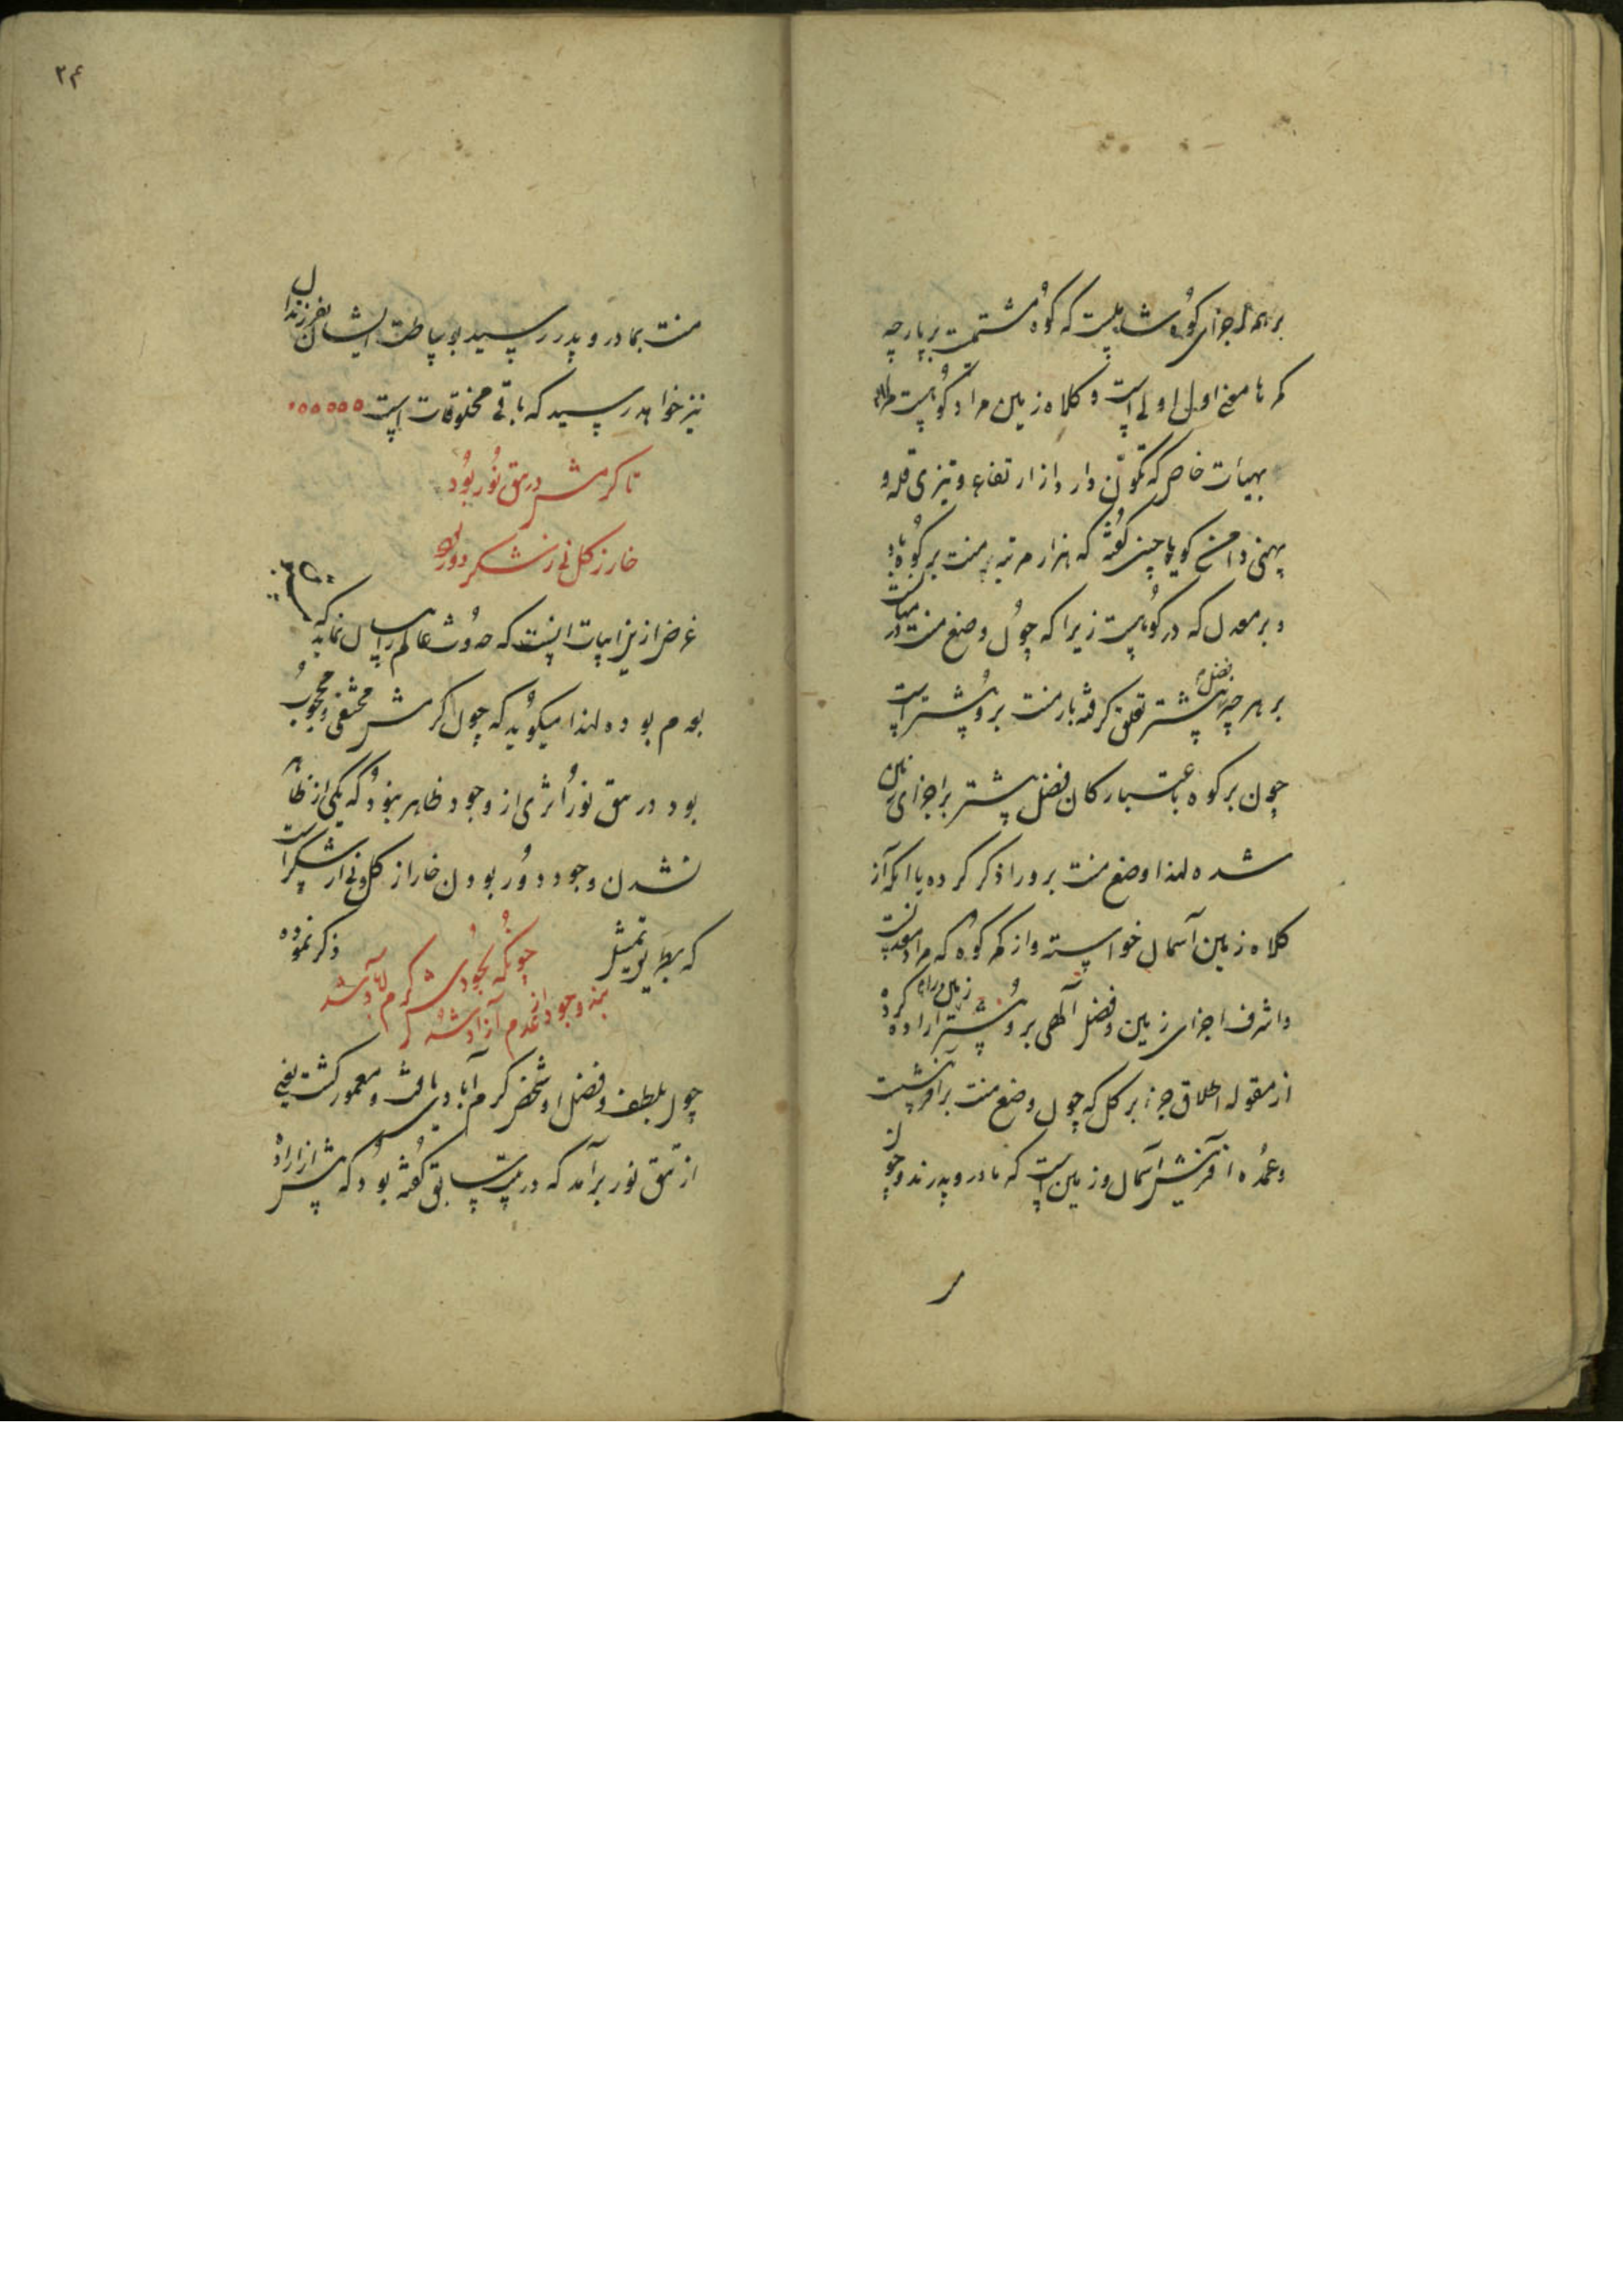 بر همه اجزای کوه شاملست که کوه مشتملست بر پارچه
کمرها معنی اول اولی است و کلاه زمین مراد کوهست
بهیأت خاص که تکون دارد از ارتفاع و تیزی قله و
پهنی دامن گویا چنین گفته که هزار مرتبه منت بر کوه نهاد
و بر معدن که در کوهست زیرا که چون وضع منت
بر هر چه فضل بیشتر تعلق گرفته بار منت برو بیشتر است
چون بر کوه باعتبار کان فضل بیشتر بر اجزای زمین
شده لهذا وضع منت برو را ذکر کرده با آنکه از
کلاه زمین آسمان خواسته و از کمر کوه که مراد معدنست
و اشرف اجزای زمین و فضل آلهی برو بیشتر زمین را اراده کرده
از مقوله اطلاق جزء بر کل که چون وضع منت بر آفرینشست
و عمده آفرینش آسمان و زمین است که مادر و پدرند و چون
۲۴
منت بمادر و پدر رسید بوساطت ایشان بفرزندان
نیز خواهد رسید که باقی مخلوقات است
تا کرمش در تتق نور بود
خار ز گل نی ز شکر دور بود
غرض ازین ابیات اینست که حدوث عالم را بیان نماید که
بعدم بوده لهذا میگوید که چون کرمش مختفی و محجوب
بود در تتق نور اثری از وجود ظاهر نبود که یکی از ظاهر
نشدن وجود دور بودن خار از گل و نی از شکر است
که بطریق تمثیل ذکر نموده
چونکه بجودش کرم آباد شد
بند وجود از عدم آزاد شد
چون بلطف و فضل او شخص کرم آبادی یافت و معمور گشت یعنی
از تتق نور برآمد که در بیت سابق گفته بود که پیش از اراده